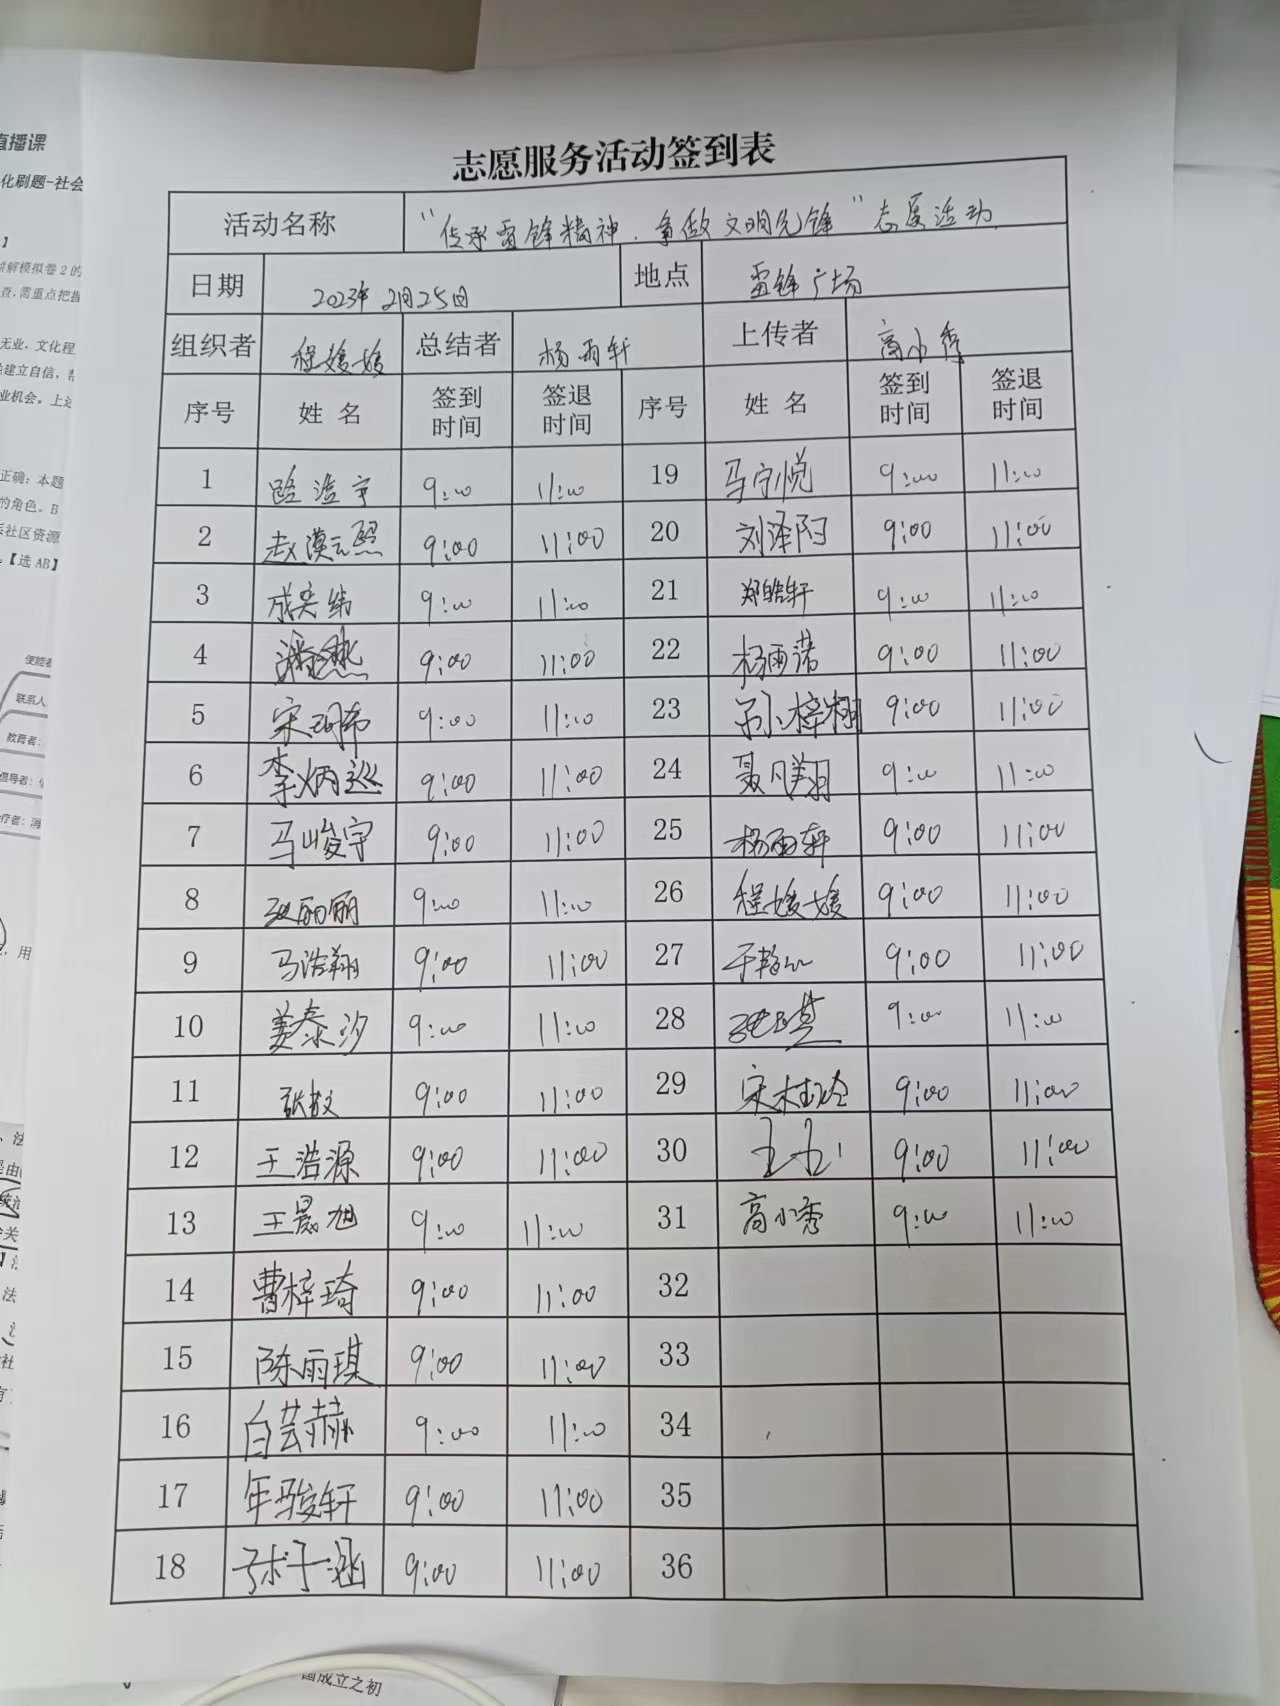 直播课
化刷题-社会
讲解模拟卷2的
查,需重点把握
无业,文化程
建立自信,
业机会。上
正确;本题
的角色。B
社区资源
。【选AB】
使能者
联系人
教育者:
倡导者:
疗者:
,用
志愿服务活动签到表
活动名称 “传承雷锋精神.争做文明先锋”志愿活动
日期 2023年2月25日 地点 雷锋广场
组织者 程媛媛 总结者 杨雨轩 上传者 高小秀
序号 姓 名 签到时间 签退时间 序号 姓 名 签到时间 签退时间
1 9:00 11:00 19 马宁悦 9:00 11:00
2 赵漠熙 9:00 11:00 20 刘泽阳 9:00 11:00
3 成奕纬 9:00 11:00 21 郑皓轩 9:00 11:00
4 9:00 11:00 22 杨雨诺 9:00 11:00
5 宋玥希 9:00 11:00 23 孙梓栩 9:00 11:00
6 李炳巡 9:00 11:00 24 聂凡翔 9:00 11:00
7 马峻宇 9:00 11:00 25 杨雨轩 9:00 11:00
8 丽丽 9:00 11:00 26 程媛媛 9:00 11:00
9 马浩翔 9:00 11:00 27 9:00 11:00
10 姜泰汐 9:00 11:00 28 9:00 11:00
11 张敬 9:00 11:00 29 宋桂玲 9:00 11:00
12 王浩源 9:00 11:00 30 9:00 11:00
13 王晨旭 9:00 11:00 31 高小秀 9:00 11:00
14 曹梓琦 9:00 11:00 32
15 陈雨琪 9:00 11:00 33
16 白芸赫 9:00 11:00 34
17 年骏轩 9:00 11:00 35
18 子涵 9:00 11:00 36
国成立之初